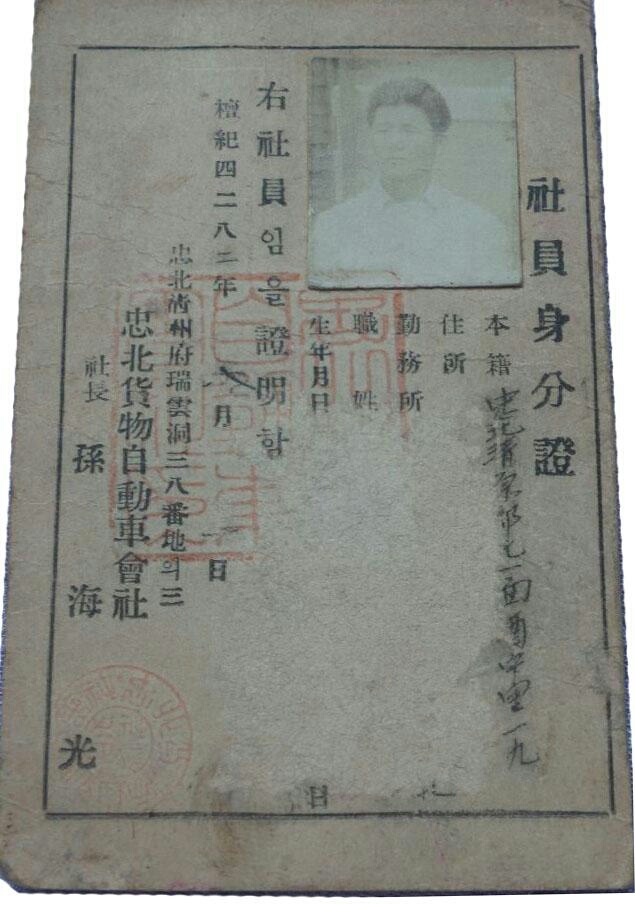 社員身分證
本籍
住所
勤務所
職 姓
生年月日
日
右社員임을證明함
檀紀四二八二年 八月 日
忠北淸州府瑞雲洞三八番地의三
忠北貨物自動車會社
社長 孫海光